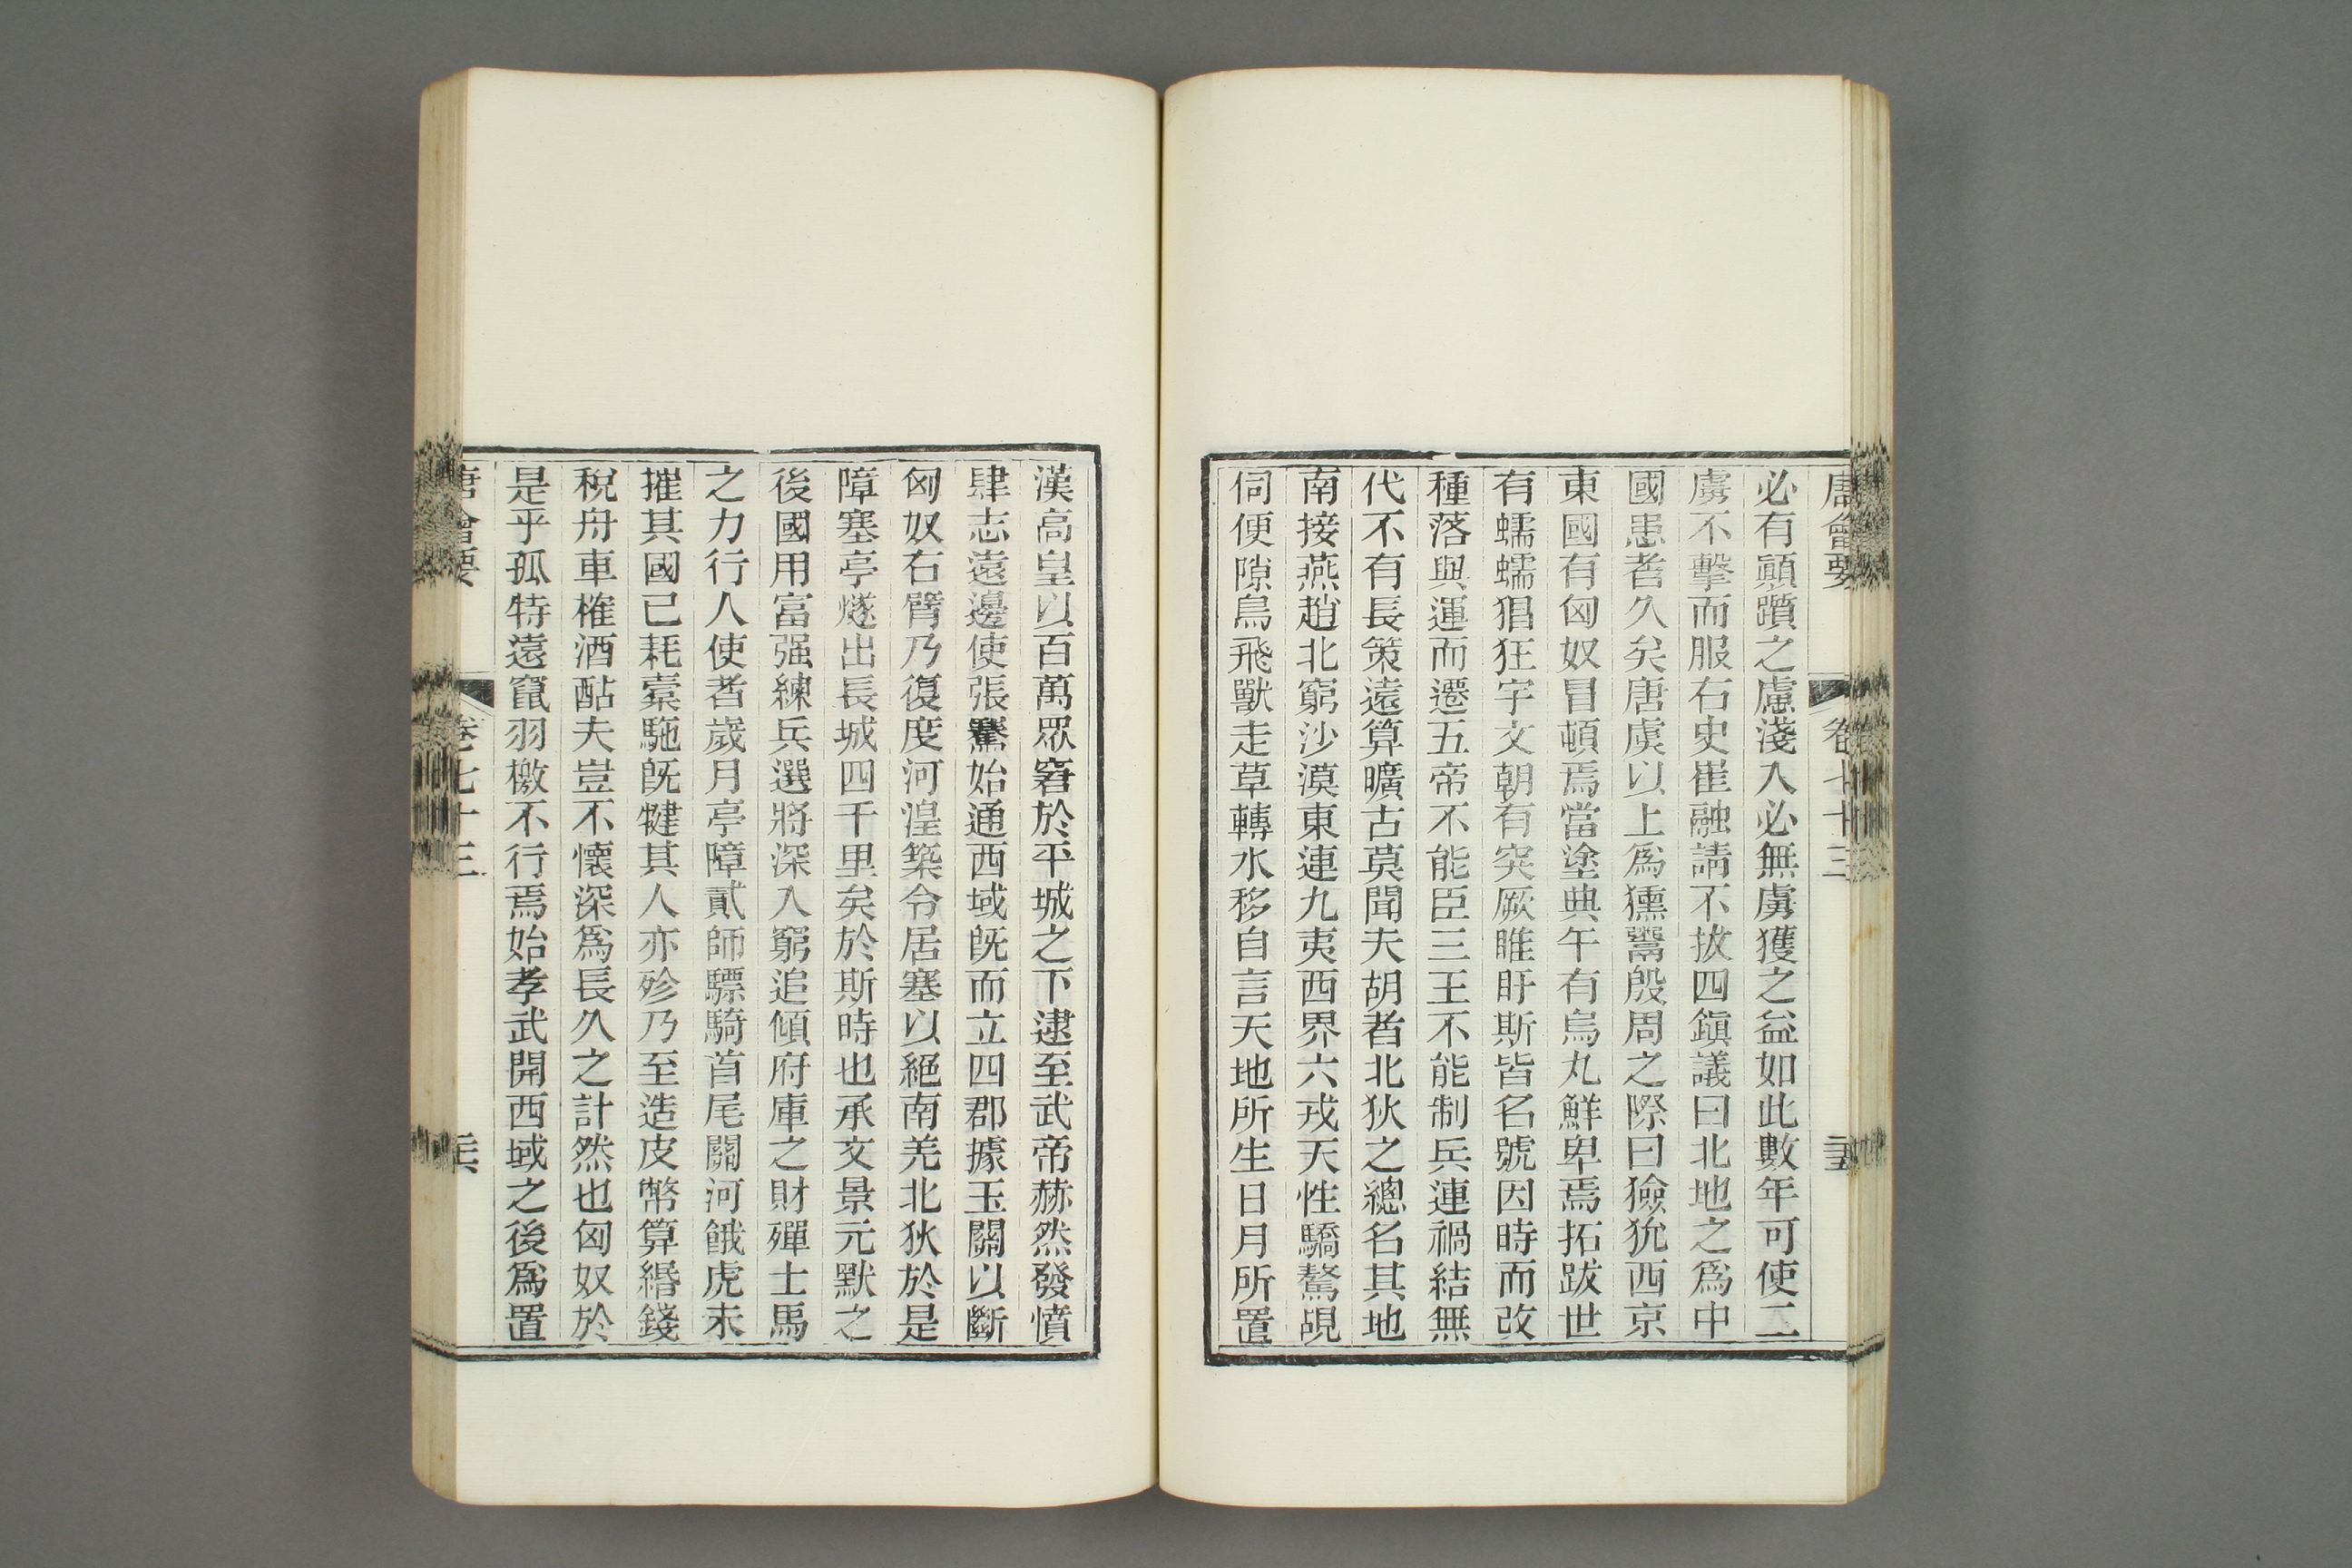 唐會要 卷七十三 三五
必有顚躓之慮淺入必無虜獲之益如此數年可使二
虜不擊而服右史崔融請不拔四鎭議曰北地之爲中
國患者久矣唐虞以上爲獯鬻殷周之際曰獫狁西京
東國有匈奴冒頓焉當塗典午有烏丸鮮卑焉拓跋世
有蠕蠕猖狂宇文朝有突厥睢盱斯皆名號因時而改
種落與運而遷五帝不能臣三王不能制兵連禍結無
代不有長策遠算曠古莫聞夫胡者北狄之總名其地
南接燕趙北窮沙漠東連九夷西界六戎天性驕驁覘
伺便隙鳥飛獸走草轉水移自言天地所生日月所置
漢高皇以百萬眾窘於平城之下逮至武帝赫然發憤
肆志遠邊使張騫始通西域旣而立四郡據玉關以斷
匈奴右臂乃復度河湟築令居塞以絕南羌北狄於是
障塞亭燧出長城四千里矣於斯時也承文景元默之
後國用富强練兵選將深入窮追傾府庫之財殫士馬
之力行人使者歲月亭障貳師驃騎首尾關河餓虎未
摧其國已耗橐駞旣犍其人亦殄乃至造皮幣算緡錢
稅舟車榷酒酤夫豈不懷深爲長久之計然也匈奴於
是乎孤特遠竄羽檄不行焉始孝武開西域之後爲置
唐會要 卷七十三